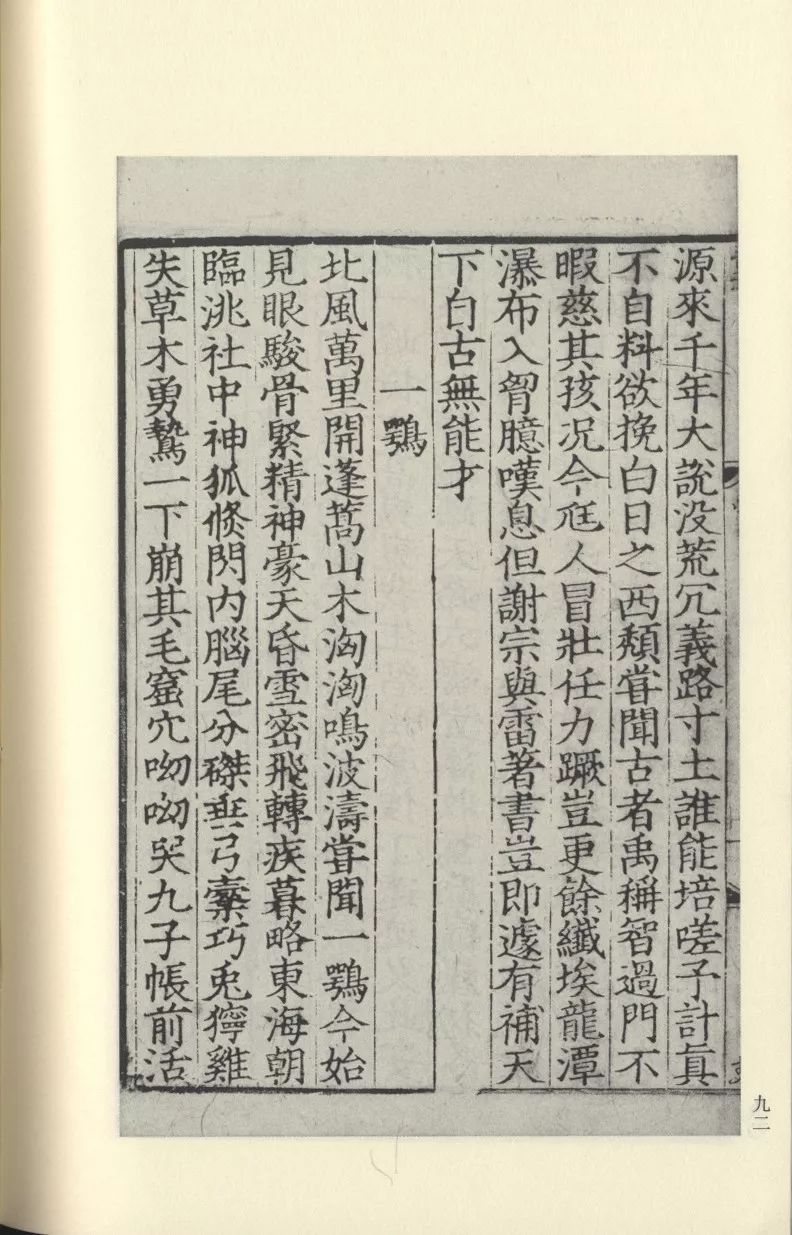 源來千年大說没荒冗義路寸土誰能培嗟子計眞
不自料欲挽白日之西頽甞聞古者禹稱智過門不
暇慈其孩况今尫人冒壯任力蹶豈更餘纖埃龍潭
瀑布入胷臆嘆息但謝宗與雷著書豈即遽有補天
下自古無能才
一鶚
北風萬里開蓬蒿山木洶洶鳴波濤甞聞一鶚今始
見眼駿骨緊精神豪天昏雪密飛轉疾暮略東海朝
臨洮社中神狐倐閃内腦尾分磔垂弓櫜巧兎獰雞
失草木勇鷙一下崩其毛窟穴呦呦哭九子帳前活
九二